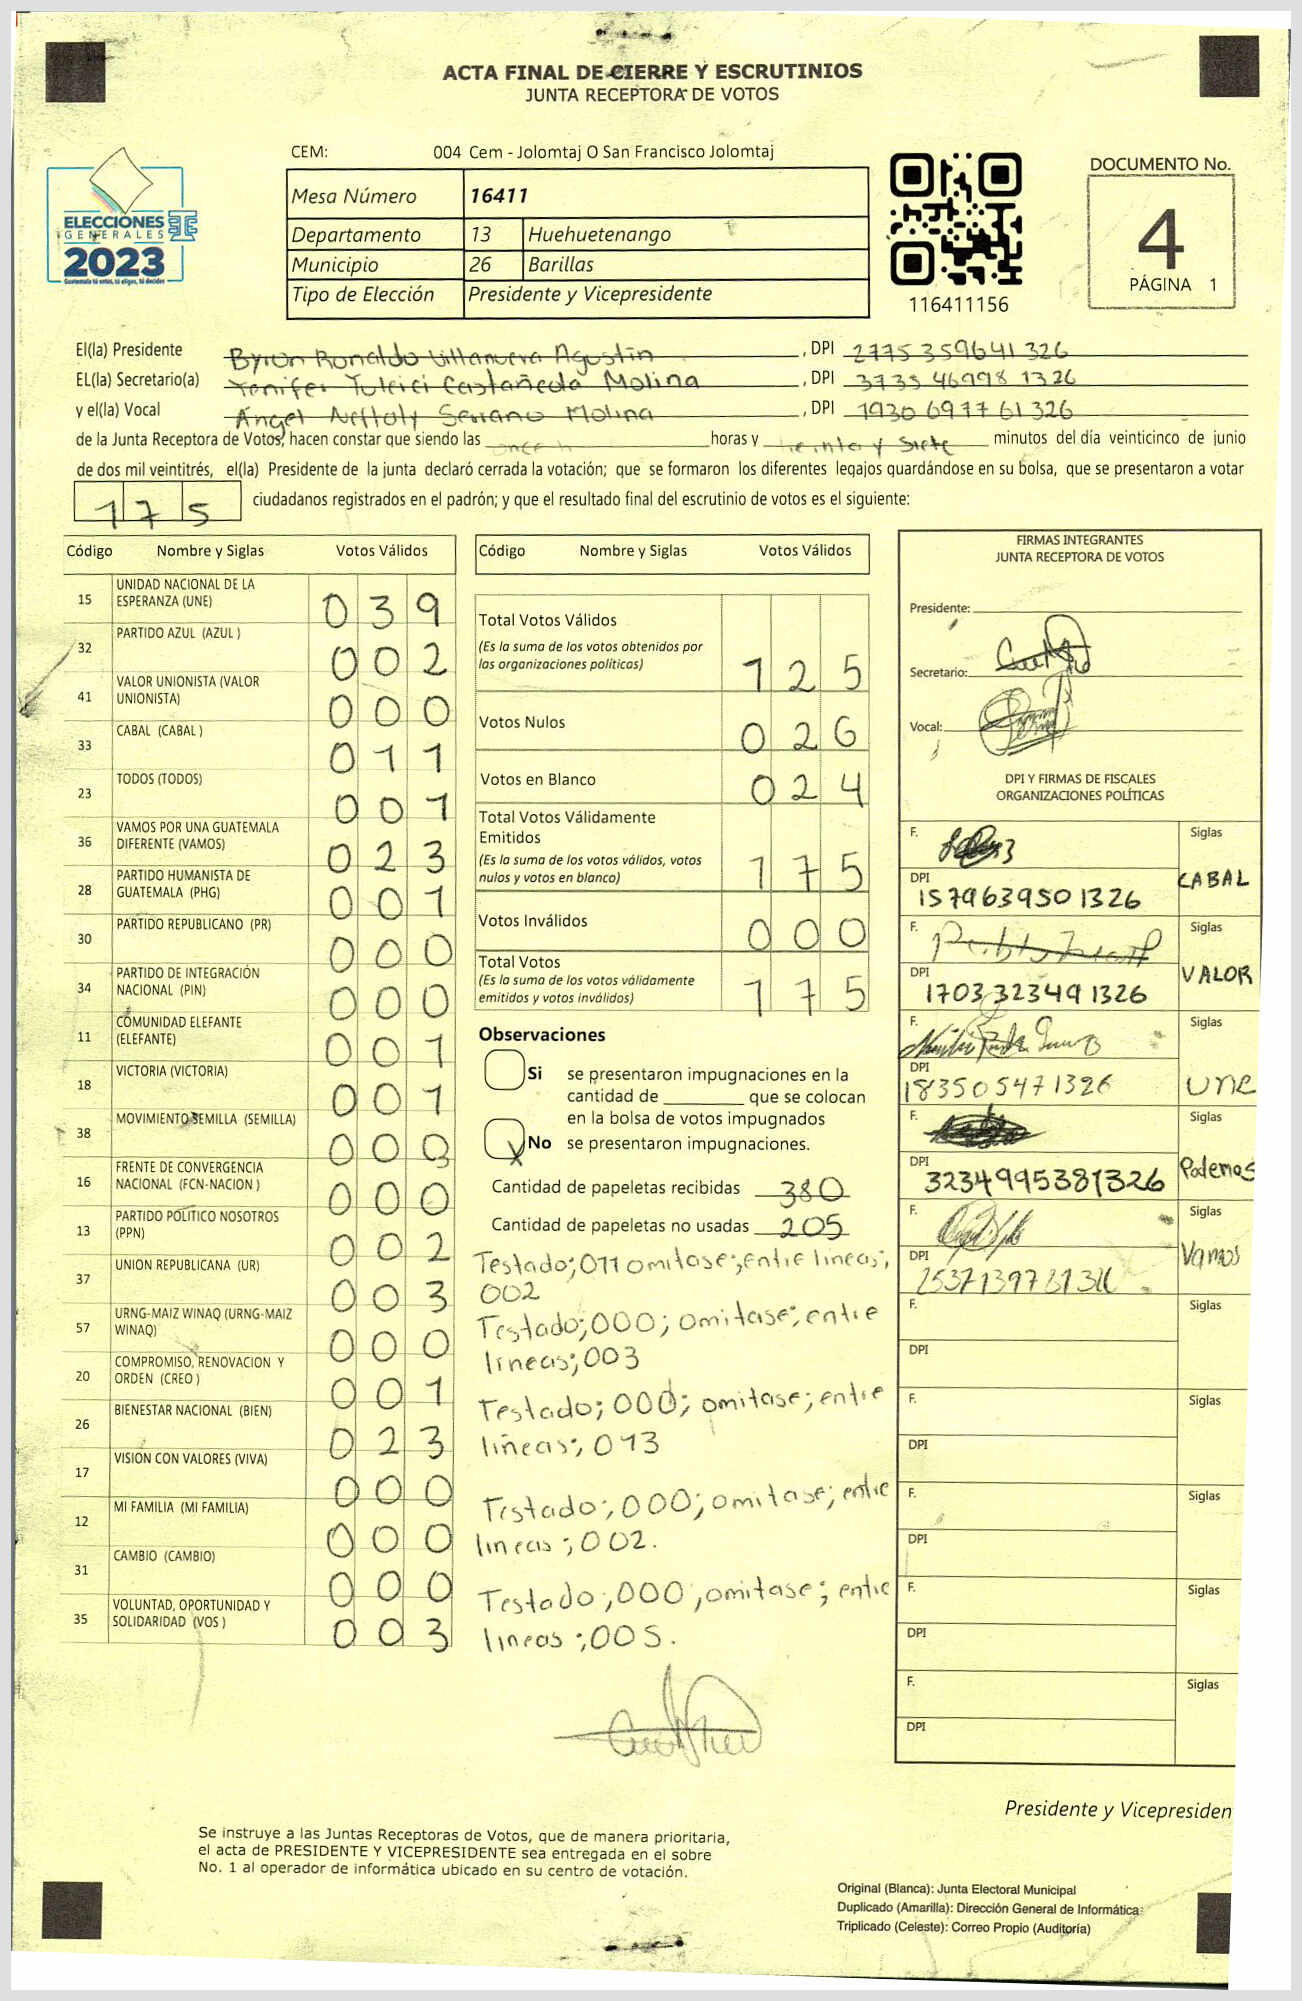 ACTA FINAL DE CIERRE Y ESCRUTINIOS
JUNTA RECEPTORA DE VOTOS
CEM: 004 Cem - Jolomtaj O San Francisco Jolomtaj
ELECCIONES
GENERALES
2023
Guatemala tú votas, tú eliges, tú decides
Mesa Número 16411
Departamento 13 Huehuetenango
Municipio 26 Barillas
Tipo de Elección Presidente y Vicepresidente
116411156
DOCUMENTO No.
4
PÁGINA 1
El(la) Presidente Byron Ronaldo Villanueva Agustín , DPI 2775 359641 326
EL(la) Secretario(a) Yenifer Yuleici Castañeda Molina , DPI 3735 46998 1326
y el(la) Vocal Ángel Neftoly Serrano Molina , DPI 1930 69776 1326
de la Junta Receptora de Votos, hacen constar que siendo las once horas y veinta y siete minutos del día veinticinco de junio
de dos mil veintitrés, el(la) Presidente de la junta declaró cerrada la votación; que se formaron los diferentes legajos quardándose en su bolsa, que se presentaron a votar
175 ciudadanos registrados en el padrón; y que el resultado final del escrutinio de votos es el siguiente:
Código Nombre y Siglas Votos Válidos
15 UNIDAD NACIONAL DE LA ESPERANZA (UNE) 039
32 PARTIDO AZUL (AZUL ) 002
41 VALOR UNIONISTA (VALOR UNIONISTA) 000
33 CABAL (CABAL ) 011
23 TODOS (TODOS) 001
36 VAMOS POR UNA GUATEMALA DIFERENTE (VAMOS) 023
28 PARTIDO HUMANISTA DE GUATEMALA (PHG) 001
30 PARTIDO REPUBLICANO (PR) 000
34 PARTIDO DE INTEGRACIÓN NACIONAL (PIN) 000
11 COMUNIDAD ELEFANTE (ELEFANTE) 001
18 VICTORIA (VICTORIA) 001
38 MOVIMIENTO SEMILLA (SEMILLA) 000
16 FRENTE DE CONVERGENCIA NACIONAL (FCN-NACION ) 000
13 PARTIDO POLITICO NOSOTROS (PPN) 002
37 UNION REPUBLICANA (UR) 003
57 URNG-MAIZ WINAQ (URNG-MAIZ WINAQ) 000
20 COMPROMISO, RENOVACION Y ORDEN (CREO ) 001
26 BIENESTAR NACIONAL (BIEN) 023
17 VISION CON VALORES (VIVA) 000
12 MI FAMILIA (MI FAMILIA) 000
31 CAMBIO (CAMBIO) 000
35 VOLUNTAD, OPORTUNIDAD Y SOLIDARIDAD (VOS ) 003
Código Nombre y Siglas Votos Válidos
Total Votos Válidos
(Es la suma de los votos obtenidos por
las organizaciones políticas) 125
Votos Nulos 026
Votos en Blanco 024
Total Votos Válidamente
Emitidos
(Es la suma de los votos válidos, votos
nulos y votos en blanco) 175
Votos Inválidos 000
Total Votos
(Es la suma de los votos válidamente
emitidos y votos inválidos) 175
Observaciones
Si se presentaron impugnaciones en la
cantidad de ________ que se colocan
en la bolsa de votos impugnados
X No se presentaron impugnaciones.
Cantidad de papeletas recibidas 380
Cantidad de papeletas no usadas 205
Testado; 011 omitase; entre lineas;
002
Testado; 000; omitase; entre
lineas; 003
Testado; 000; omitase; entre
lineas; 013
Testado; 000; omitase; entre
lineas; 002.
Testado; 000, omitase; entre
lineas; 005.
FIRMAS INTEGRANTES
JUNTA RECEPTORA DE VOTOS
Presidente:
Secretario:
Vocal:
DPI Y FIRMAS DE FISCALES
ORGANIZACIONES POLÍTICAS
F. Siglas
DPI 1579639501326 CABAL
F. Siglas
DPI 1703323491326 VALOR
F. Siglas
DPI 183505471326 UNE
F. Siglas
DPI 3234995381326 Podemos
F. Siglas
DPI Vamos
F. Siglas
DPI
F. Siglas
DPI
F. Siglas
DPI
F. Siglas
DPI
F. Siglas
DPI
Presidente y Vicepresiden
Se instruye a las Juntas Receptoras de Votos, que de manera prioritaria,
el acta de PRESIDENTE Y VICEPRESIDENTE sea entregada en el sobre
No. 1 al operador de informática ubicado en su centro de votación.
Original (Blanca): Junta Electoral Municipal
Duplicado (Amarilla): Dirección General de Informática
Triplicado (Celeste): Correo Propio (Auditoría)